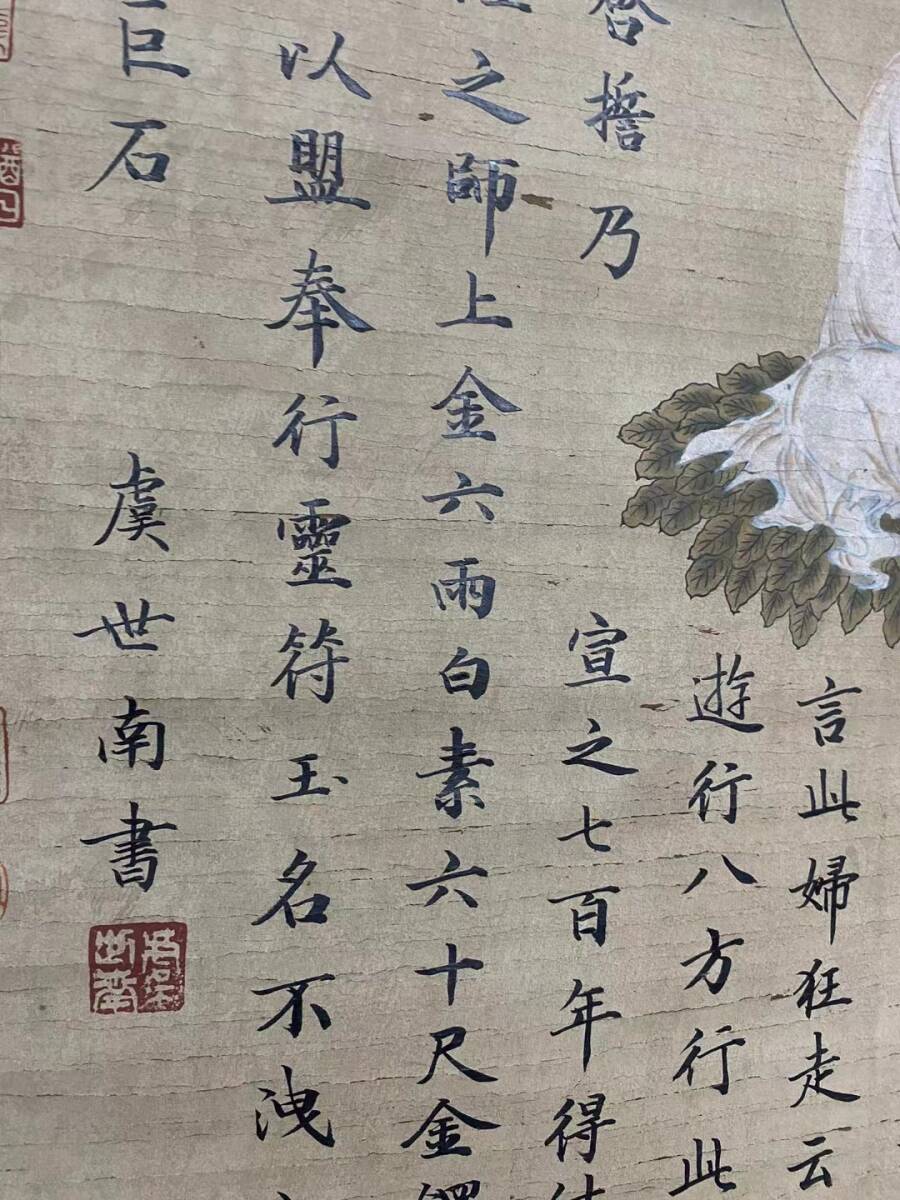 言此婦狂走云
遊行八方行此
誓乃
宣之七百年得
之師上金六雨白素六十尺金
以盟奉行靈符玉名不洩
巨石
虞世南書